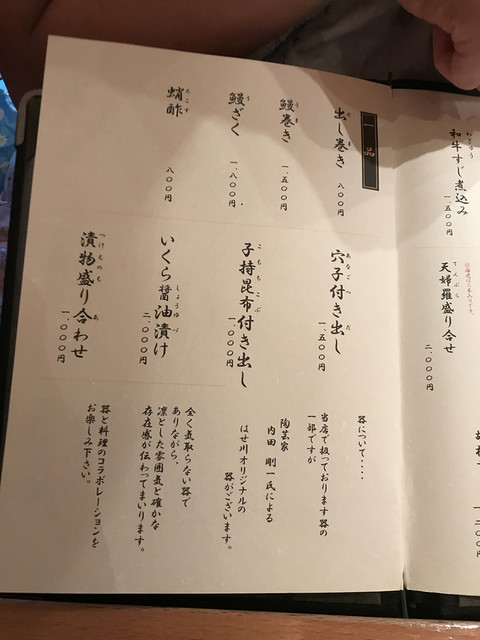 和牛すじ煮込み
一、五〇〇円
※海老は二本入りです。
天婦羅盛り合せ
てんぷら
二、〇〇〇円
一品
出し巻き
だ ま
八〇〇円
鰻巻き
う ま
一、五〇〇円
鰻ざく
う
一、八〇〇円
蛸酢
たこす
八〇〇円
穴子付き出し
あなごつ だ
一、五〇〇円
子持昆布付き出し
こもちこぶ
一、〇〇〇円
いくら醤油漬け
しょうゆづ
二、〇〇〇円
漬物盛り合わせ
つけものも あ
一、〇〇〇円
器について・・・・
当店で扱っております器の
一部ですが
陶芸家
内田 剛一氏による
はせ川オリジナルの
器がございます。
全く気取らない器で
ありながら、
凛とした雰囲気と確かな
存在感が伝わってまいります。
器と料理のコラボレーションを
お楽しみ下さい。